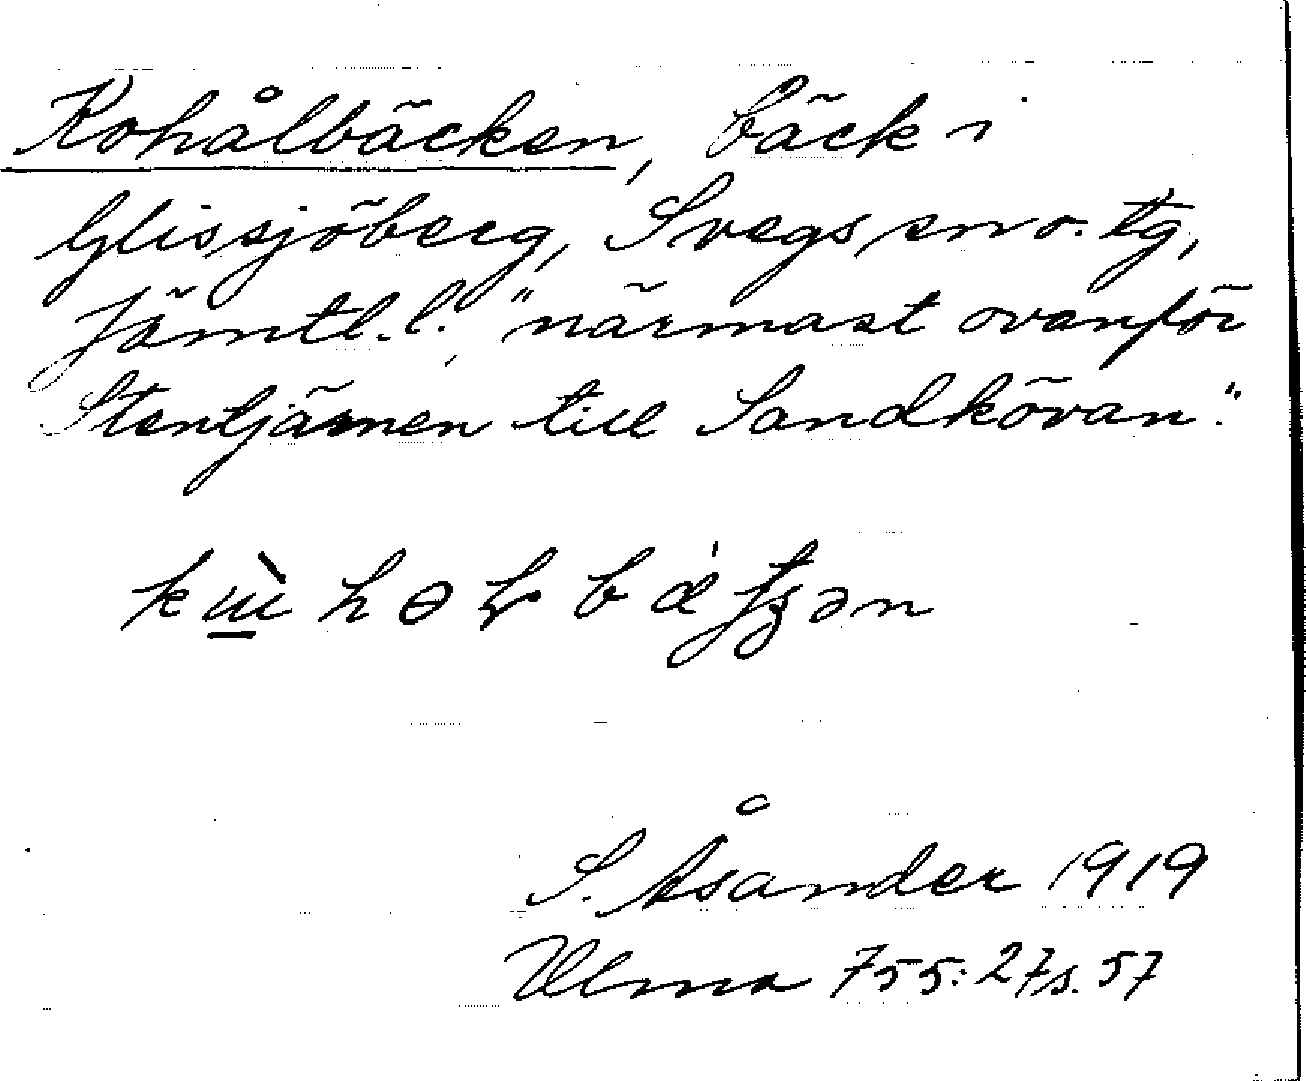 Kohålbäcken, bäck i
Glissjöberg, Svegs sn o. tg,
Jämtl. l. "närmast ovanför
Stentjärnen till Sandkövan."
S. Åsander 1919
Ulma 755:27 s. 57